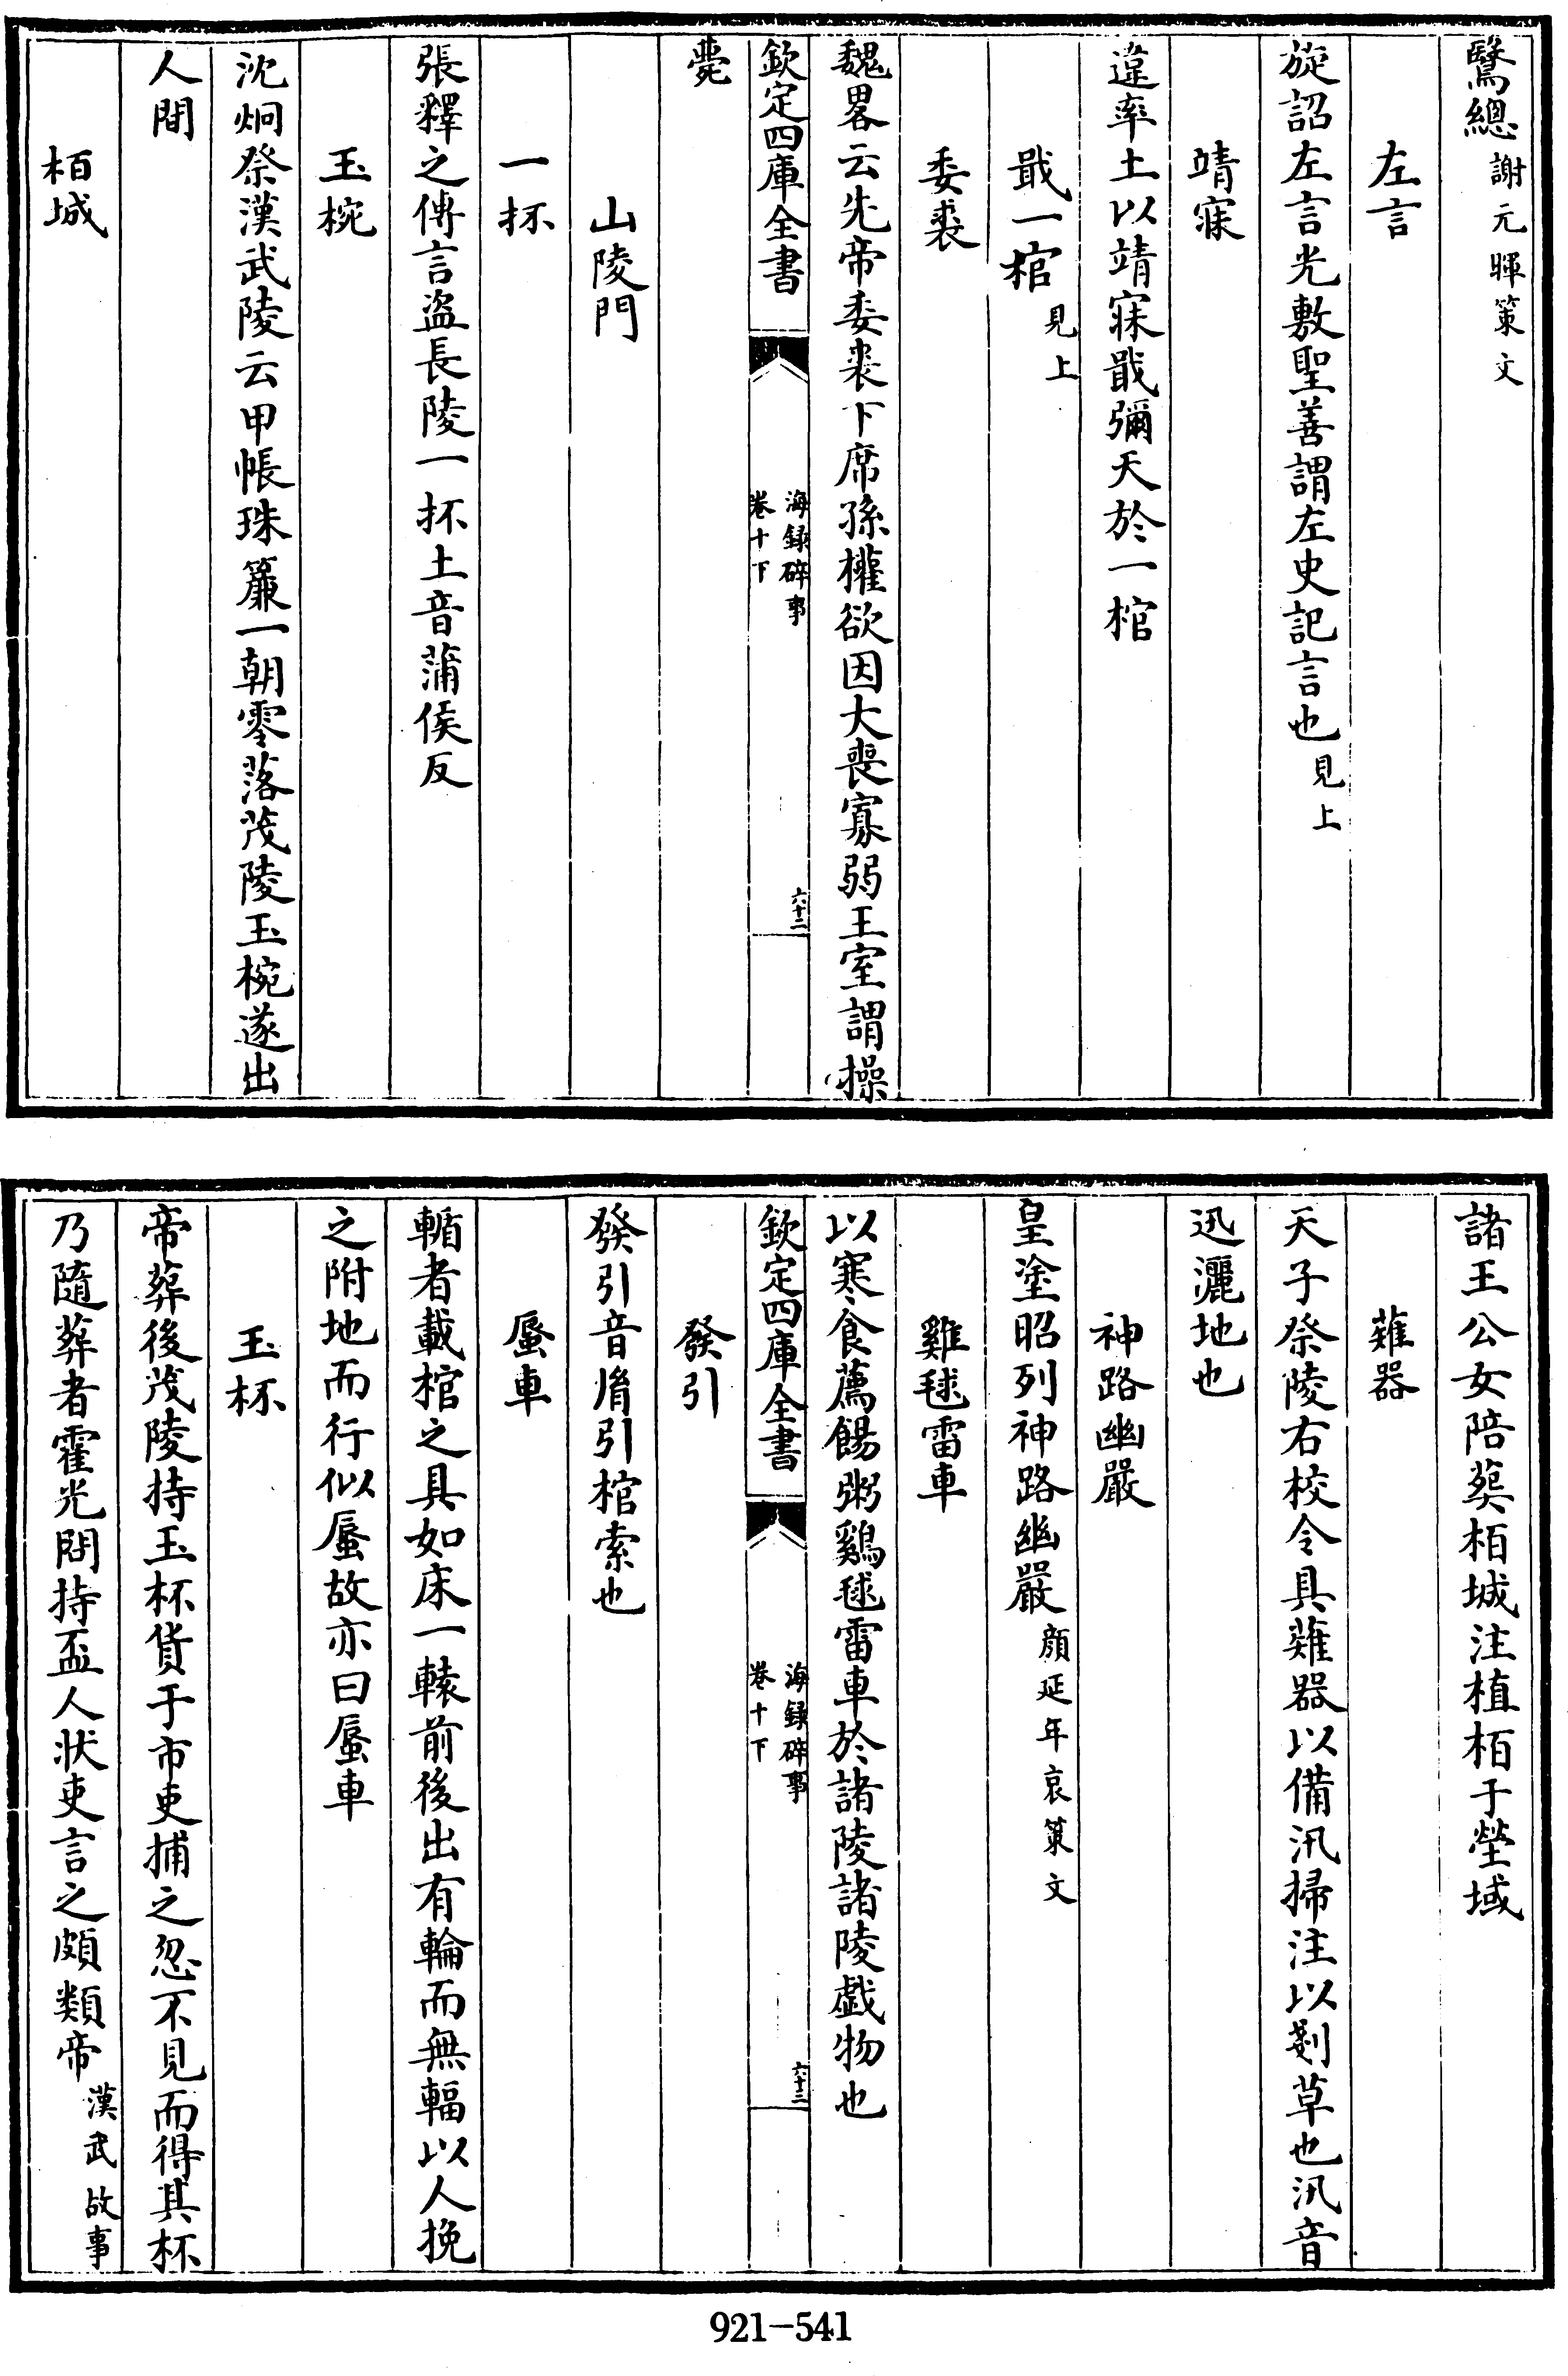 鷖總謝元暉策文
左言
旋詔左言光敷聖善謂左史記言也見上
靖寐
違率土以靖寐戢彌天於一棺
戢一棺見上
委裘
魏畧云先帝委裘下席孫權欲因大喪寡弱王室謂操
欽定四庫全書
海録碎事
卷十下
六十二
薨
山陵門
一抔
張釋之傳言盜長陵一抔土音蒲侯反
玉椀
沈炯祭漢武陵云甲帳珠簾一朝零落茂陵玉椀遂出
人間
栢城
諸王公女陪葬栢城注植栢于塋域
薙器
天子祭陵右校令具薙器以備汛掃注以剗草也汛音
迅灑地也
神路幽嚴
皇塗昭列神路幽嚴顔延年哀策文
雞毬雷車
以寒食薦餳粥鷄毬雷車於諸陵諸陵戲物也
欽定四庫全書
海録碎事
卷十下
六十三
發引
發引音胤引棺索也
蜃車
輴者載棺之具如床一轅前後出有輪而無輻以人挽
之附地而行似蜃故亦曰蜃車
玉杯
帝葬後茂陵持玉杯貨于市吏捕之忽不見而得其杯
乃隨葬者霍光問持盃人狀吏言之頗類帝漢武故事
921-541